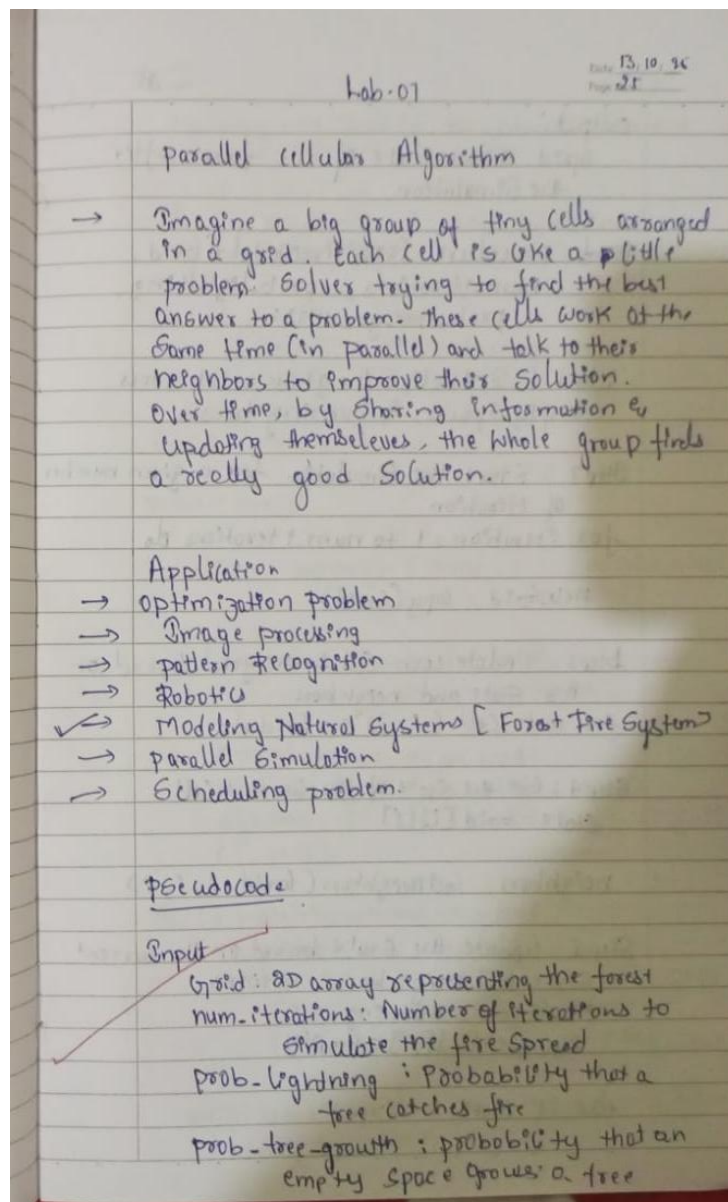 Date 13/10/25
Page 25
Lab-07
parallel cellular Algorithm
→ Imagine a big group of tiny cells arranged
in a grid. Each cell is like a little
problem solver trying to find the best
answer to a problem. These cells work at the
same time (in parallel) and talk to their
neighbors to improve their solution.
Over time, by sharing information &
updating themseleves, the whole group finds
a really good solution.
Application
→ optimization problem
→ Image processing
→ pattern Recognition
→ Robotics
→ Modeling Natural Systems [Forest Fire System]
→ parallel Simulation
→ Scheduling problem.
pseudocode
Input
Grid: 2D array representing the forest
num-iterations: Number of iterations to
simulate the fire spread
prob-lightning : Probability that a
tree catches fire
prob-tree-growth : probability that an
empty space grows a tree